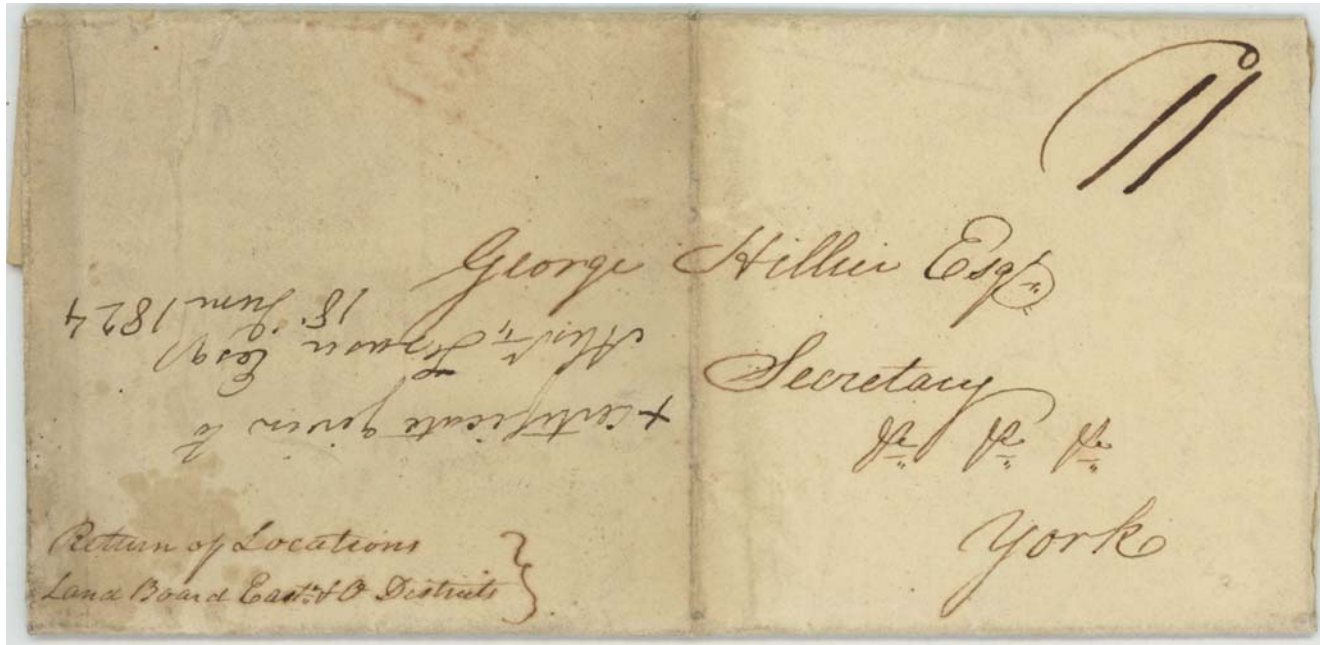 11
George Hillier Esqr
Secretary
&c &c &c
York
+ certificate given to
Esqr
18 June 1824
Return of Locations
Land Board East. & O Districts }